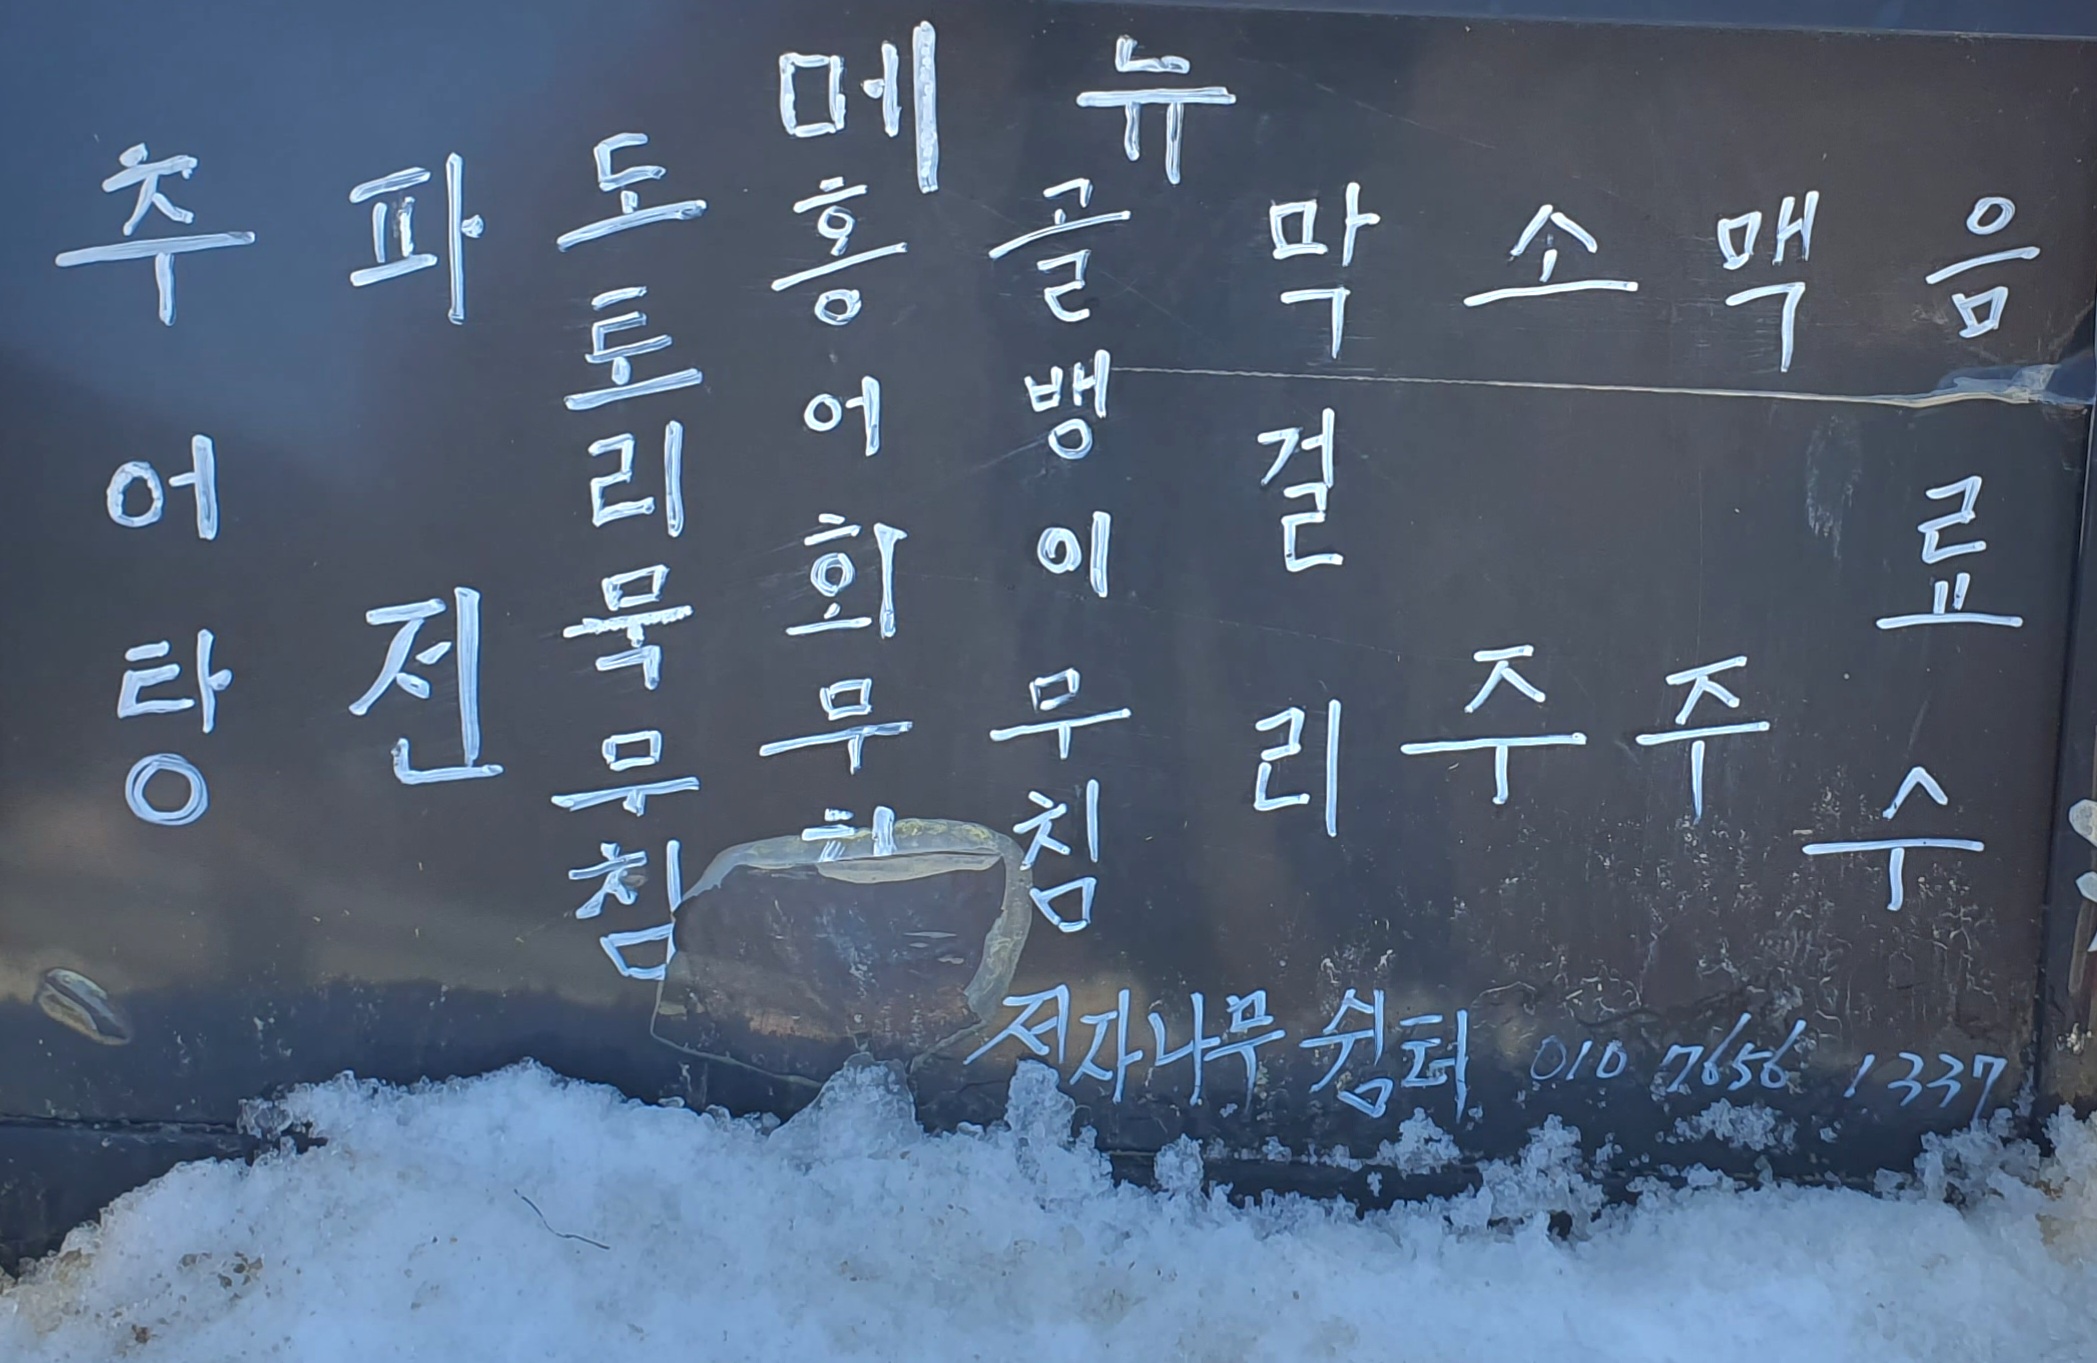 메뉴
추어탕
파전
도토리묵무침
홍어회무
골뱅이무침
막걸리
소주
맥주
음료수
전자나무 쉼터 010 7656 1337